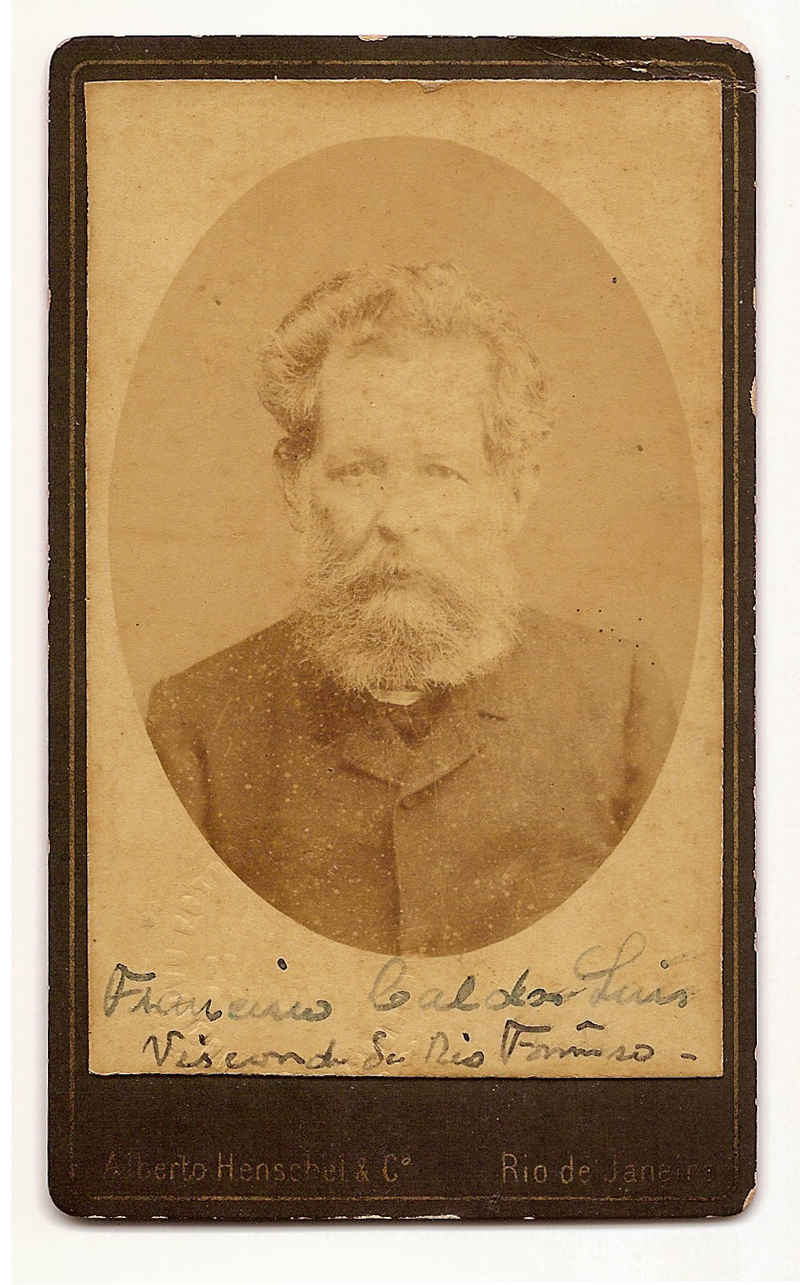 Francisco Caldas Luis
Visconde de Rio Formoso -
Alberto Henschel & Cº Rio de Janeiro